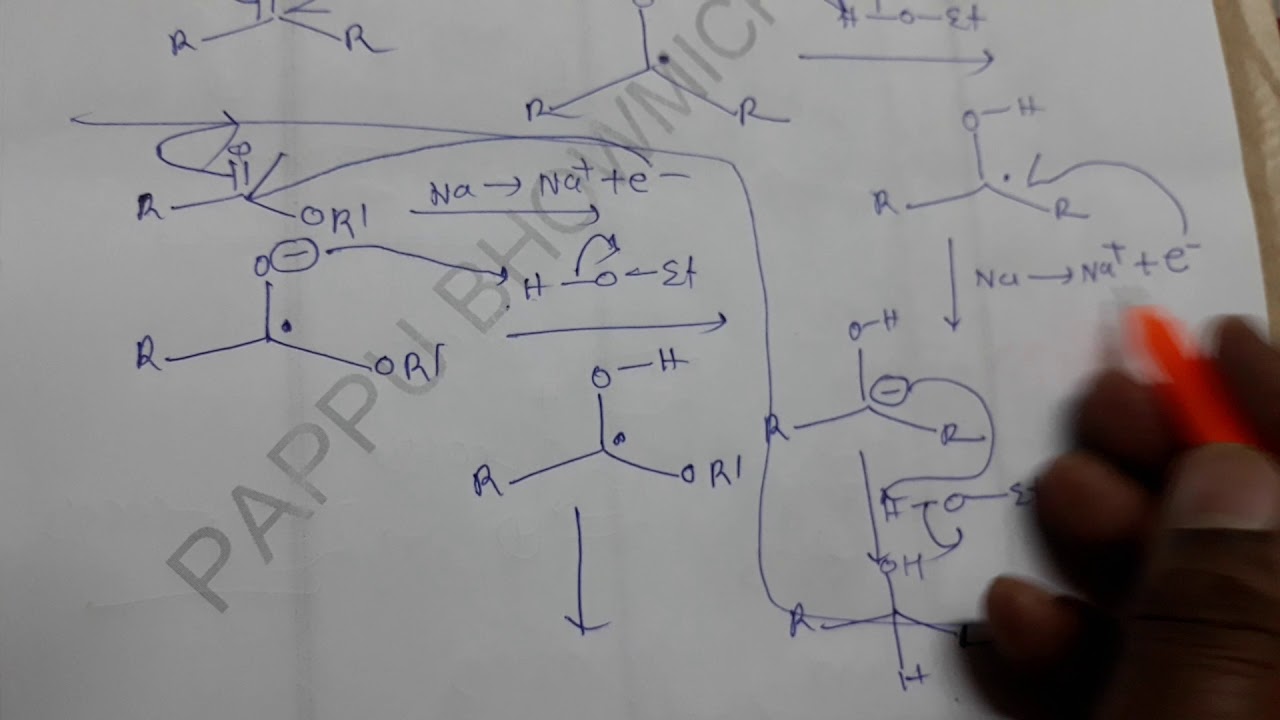 R R
O
R R
H-O-Et
O-H
R R
Na → Na⁺ + e⁻
O
R OR'
Na → Na⁺ + e⁻
O⊖ H-O-Et
R OR'
O-H
R OR'
O-H
R ⊖ R
H-O-Et
OH
R
H
PAPPU BHOWMICK